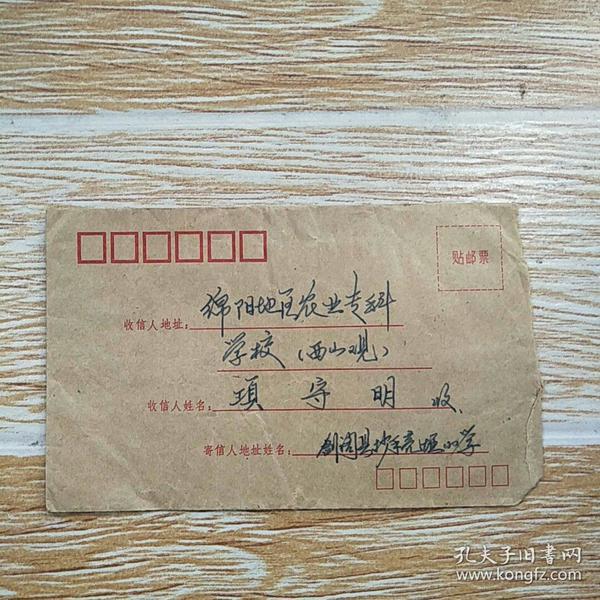 贴邮票
收信人地址: 绵阳地区农业专科
学校(西山观)
收信人姓名: 项守明 收
寄信人地址姓名: 剑阁县 小学
孔夫子旧书网
www.kongfz.com